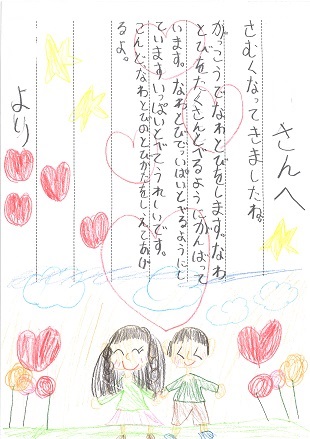 さんへ
さむくなってきましたね。
がっこうでなわとびをします。なわ
とびをたくさんとべるようにがんばって
います。なわとびでいっぱいとべるようにし
ていますいっぱいとべてうれしいです。
こんど、なわとびのとびかたをしえてあげ
るよ。
より